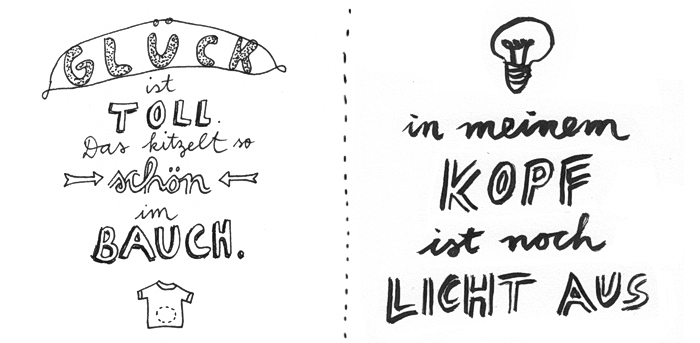 GLÜCK
ist
TOLL.
Das kitzelt so
schön
im
BAUCH.
in meinem
KOPF
ist noch
LICHT AUS